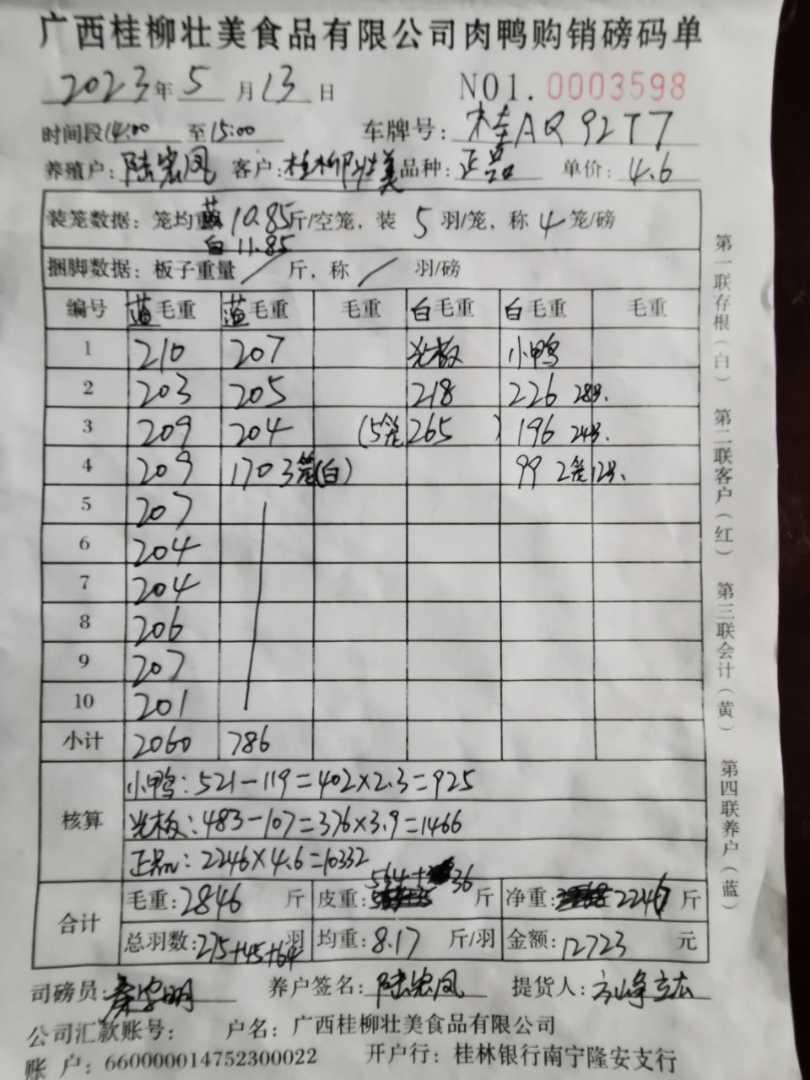 广西桂柳壮美食品有限公司肉鸭购销磅码单
2023年5月13日 NO1.0003598
时间段14:00至15:00 车牌号:桂AQ92T7
养殖户:陆宏凤 客户:桂柳壮美 品种:正品 单价:4.6
装笼数据:笼均重 蓝10.85斤/空笼,装5羽/笼,称4笼/磅
白11.85
捆脚数据:板子重量/斤,称/羽/磅
编号 蓝毛重 蓝毛重 毛重 白毛重 白毛重 毛重
1 210 207 光板 小鸭
2 203 205 218 226 28羽.
3 209 204 (5笼265) 196 24羽.
4 209 170 3笼(白) 99 2笼12羽.
5 207
6 204
7 204
8 206
9 207
10 201
小计 2060 786
核算 小鸭:521-119=402×2.3=925
光板:483-107=376×3.9=1466
正品:2246×4.6=10332
合计 毛重:2846斤 皮重:564+36斤 净重:2246斤
总羽数:275+45+64羽 均重:8.17斤/羽 金额:12723元
司磅员: 养户签名:陆宏凤 提货人:
公司汇款账号: 户名:广西桂柳壮美食品有限公司
账户:660000014752300022 开户行:桂林银行南宁隆安支行
第一联存根(白) 第二联客户(红) 第三联会计(黄) 第四联养户(蓝)